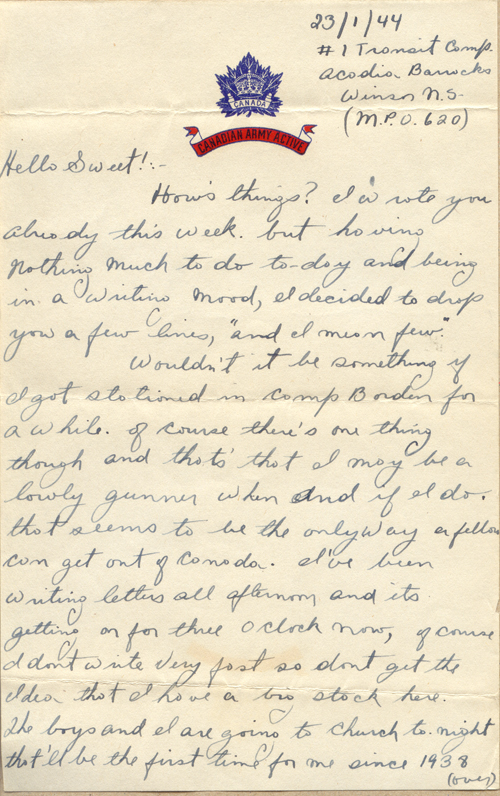 23/1/44
#1 Transit Comp.
Acadia Barracks
Winsor N.S.
(M.P.O. 620)
CANADA
CANADIAN ARMY ACTIVE
Hello Sweet!:-
How's things? I wrote you
already this week. but having
nothing much to do to-day and being
in a writing mood, I decided to drop
you a few lines, "and I mean few"
Wouldn't it be something if
I got stationed in Camp Borden for
a while. of course there's one thing
though and thats' that I may be a
lowly gunner when and if I do.
that seems to be the only way a fellow
can get out of Canada. I've been
writing letters all afternoon and its
getting on for three O clock now, of course
I dont write very fast so dont get the
Idea that I have a big stock here.
The boys and I are going to church to-night
that'll be the first time for me since 1938
(over)